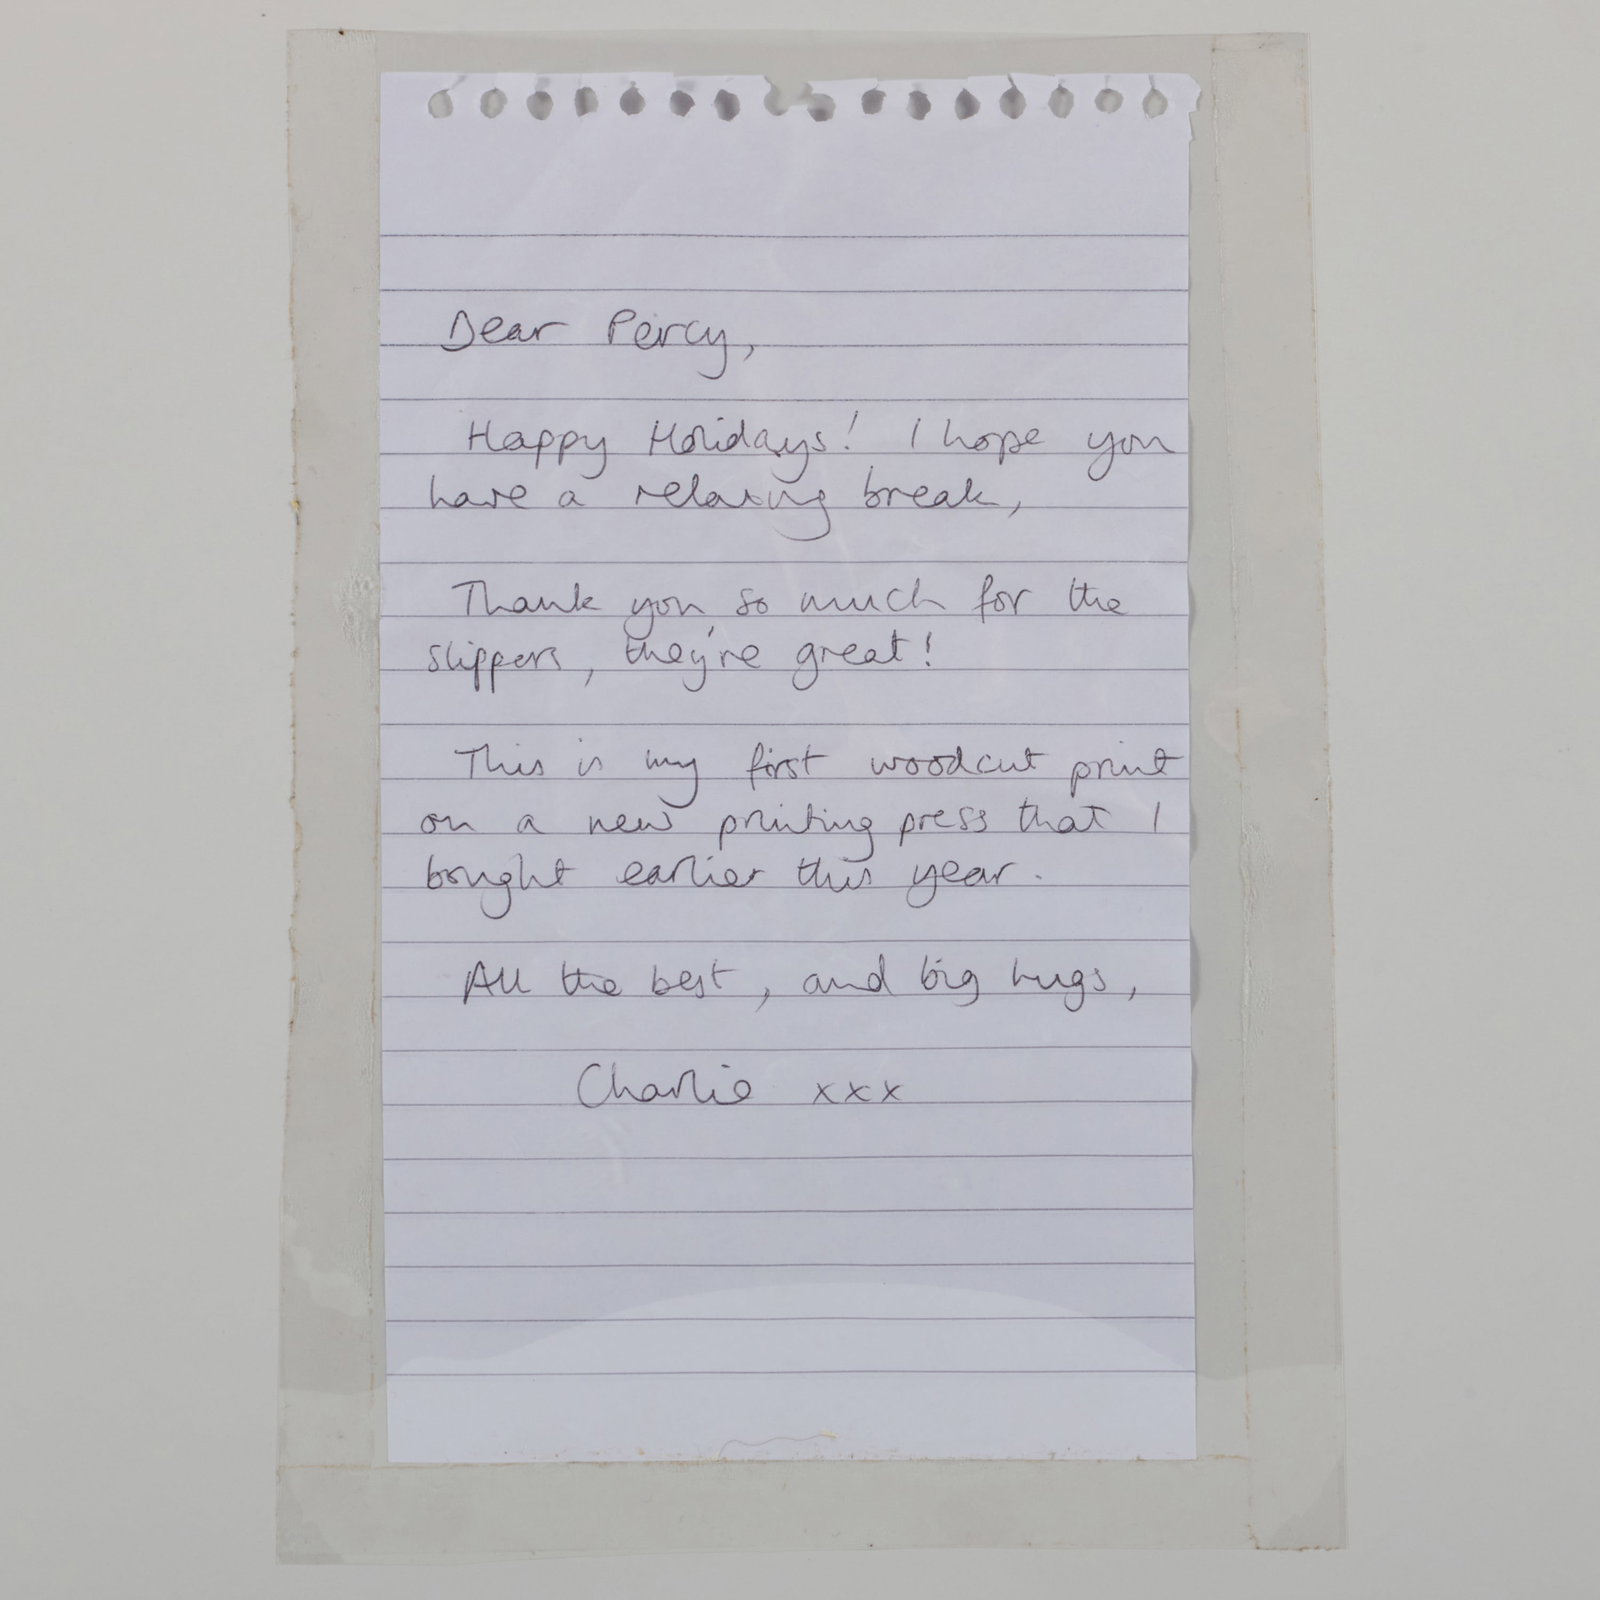 Dear Percy,
Happy Holidays! I hope you
have a relaxing break,
Thank you so much for the
slippers, they're great!
This is my first woodcut print
on a new printing press that I
bought earlier this year.
All the best, and big hugs,
Charlie xxx